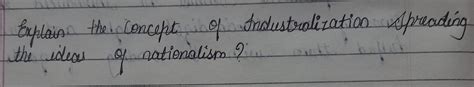 Explain the concept of Industralization spreading
the ideas of nationalism?